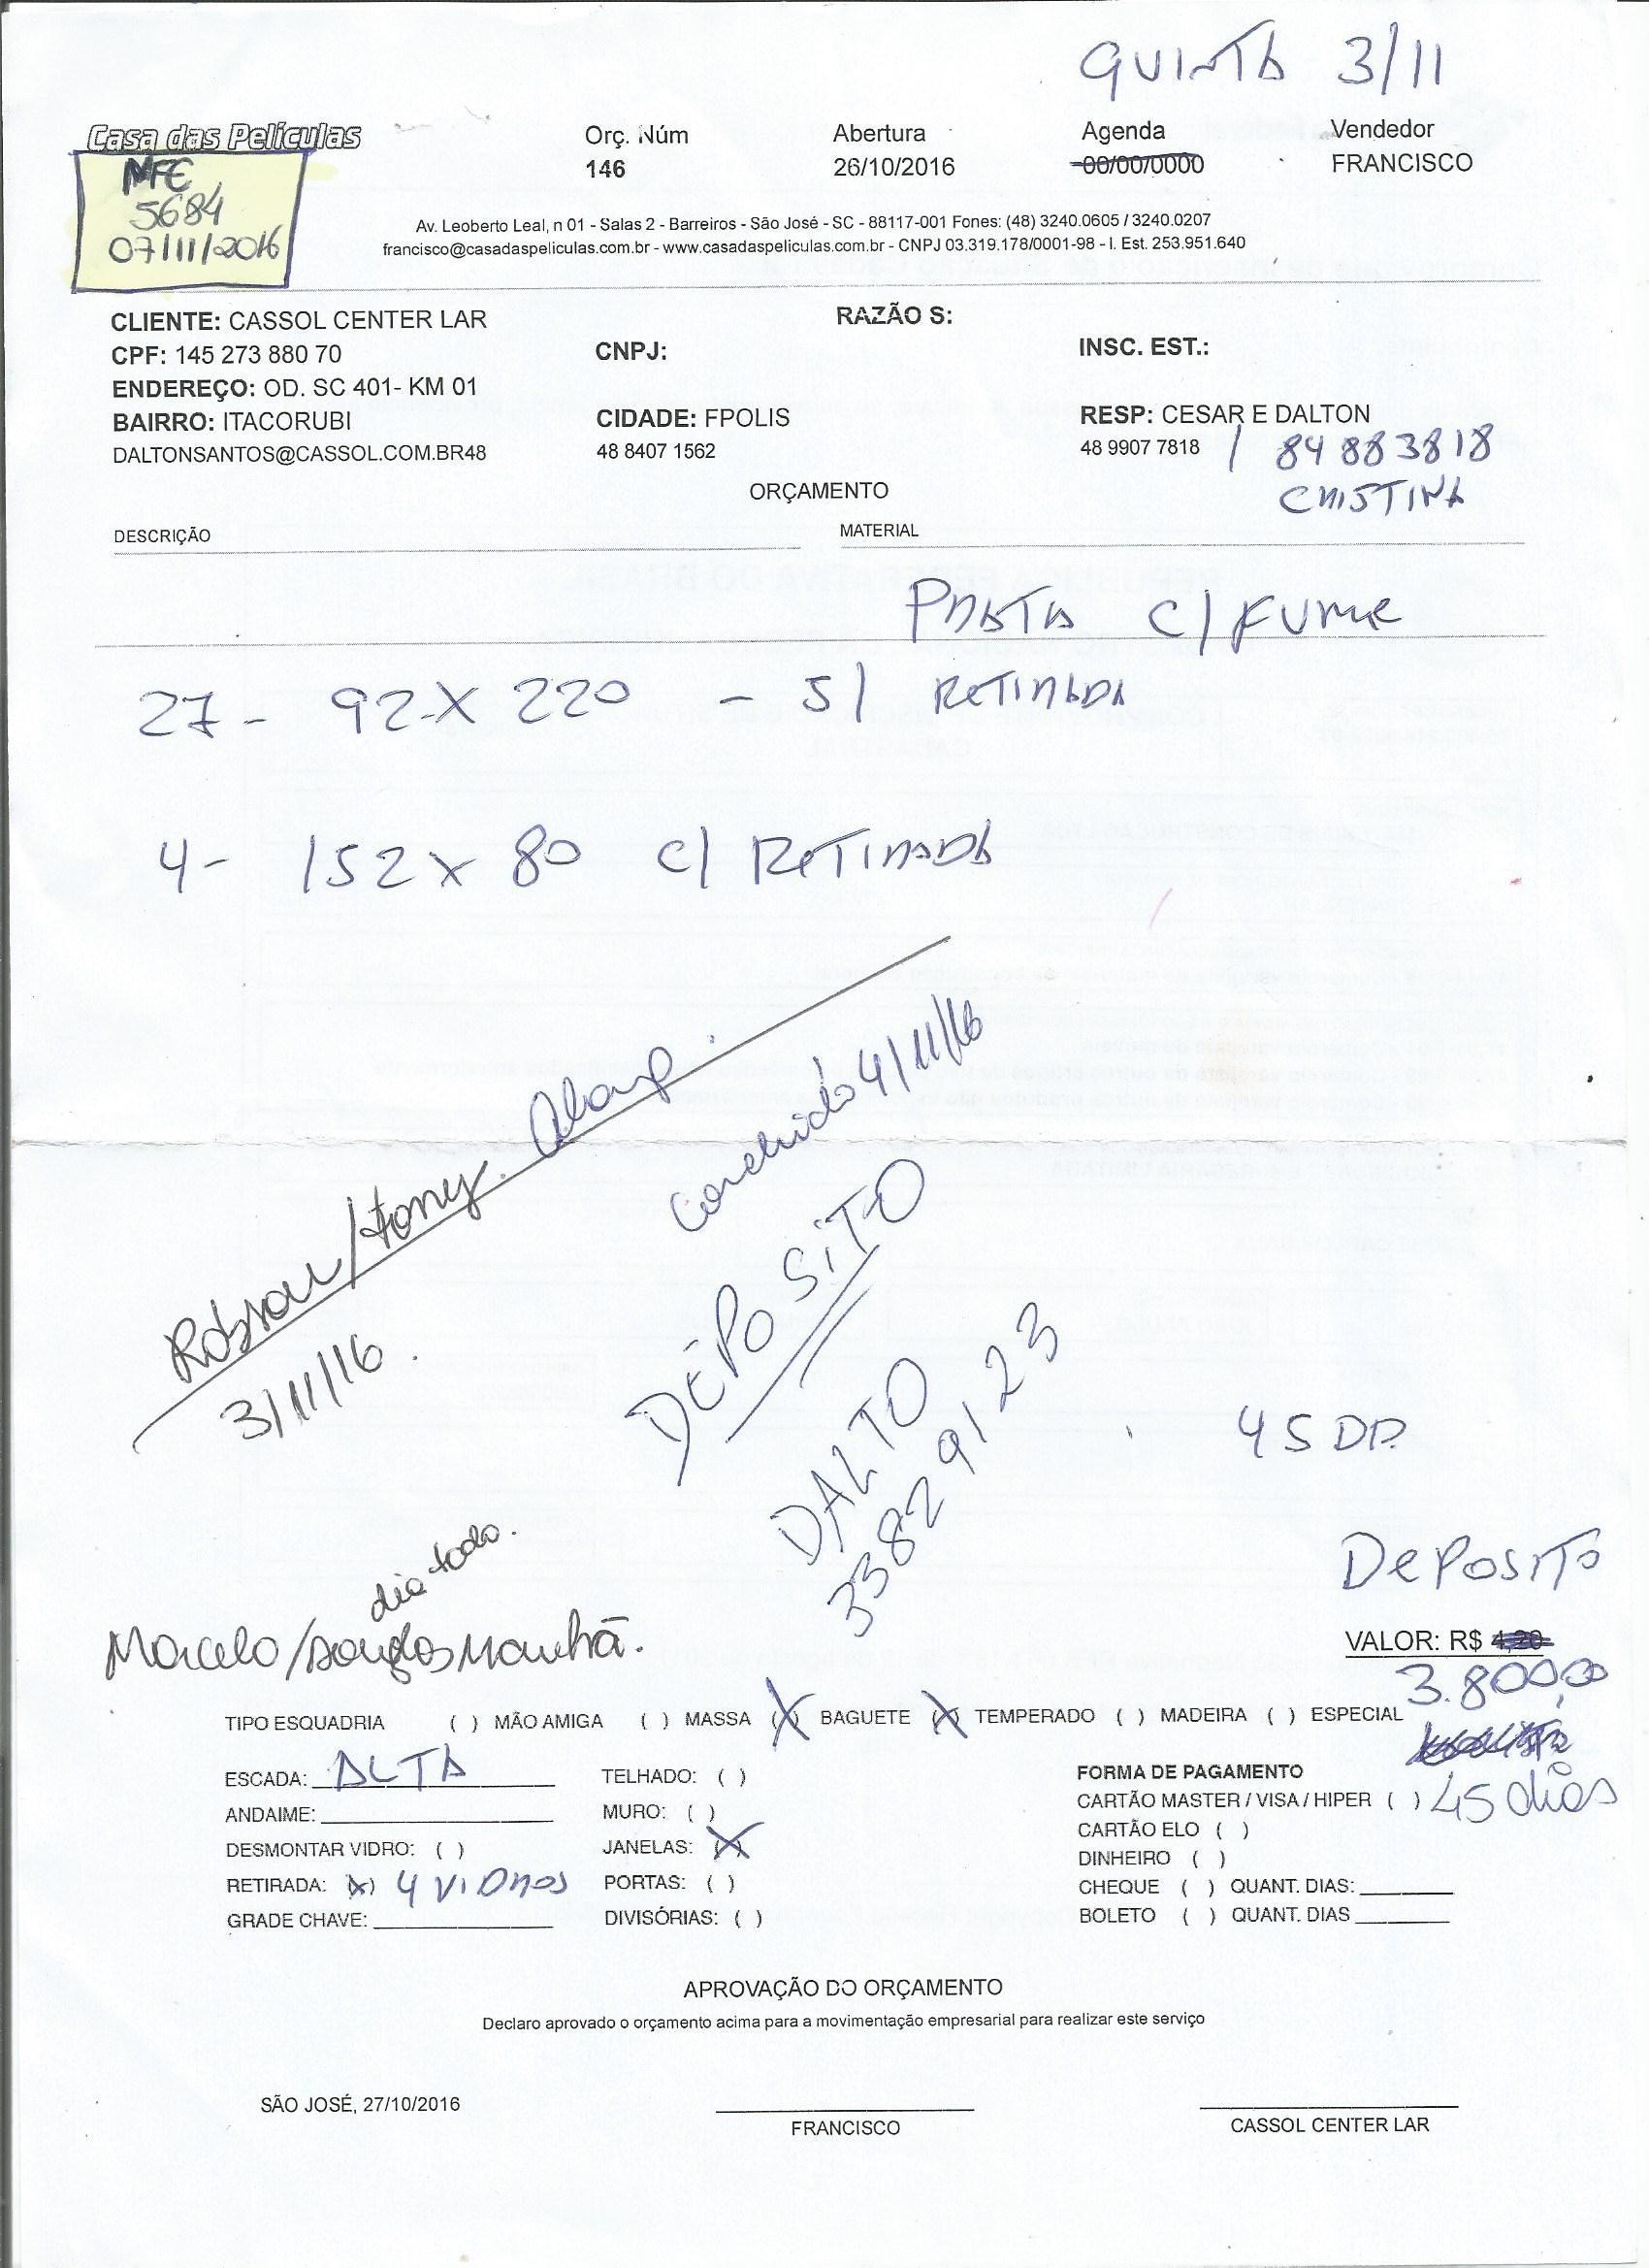 QUINTA 3/11
Casa das Películas
Orç. Núm Abertura Agenda Vendedor
146 26/10/2016 00/00/0000 FRANCISCO
NFE
5684
07/11/2016
Av. Leoberto Leal, n 01 - Salas 2 - Barreiros - São José - SC - 88117-001 Fones: (48) 3240.0605 / 3240.0207
francisco@casadaspeliculas.com.br - www.casadaspeliculas.com.br - CNPJ 03.319.178/0001-98 - I. Est. 253.951.640
CLIENTE: CASSOL CENTER LAR RAZÃO S:
CPF: 145 273 880 70 CNPJ: INSC. EST.:
ENDEREÇO: OD. SC 401- KM 01
BAIRRO: ITACORUBI CIDADE: FPOLIS RESP: CESAR E DALTON
DALTONSANTOS@CASSOL.COM.BR48 48 8407 1562 48 9907 7818 / 84883818
CRISTINA
ORÇAMENTO
DESCRIÇÃO MATERIAL
PRATA C/ FUME
27 - 92 X 220 - S/ RETIRADA
4 - 152 X 80 C/ RETIRADA
Robson/Tony.
3/11/16.
Concluido 4/11/16
DEPOSITO
DALTO
3382 9123
45 DD.
DEPOSITO
dia todo.
Marcelo/Douglas Manhã.
VALOR: R$ 4,20
3.800,00
TIPO ESQUADRIA ( ) MÃO AMIGA ( ) MASSA (X) BAGUETE (X) TEMPERADO ( ) MADEIRA ( ) ESPECIAL
ESCADA: ALTA TELHADO: ( ) FORMA DE PAGAMENTO
ANDAIME: MURO: ( ) CARTÃO MASTER / VISA / HIPER ( ) 45 dias
DESMONTAR VIDRO: ( ) JANELAS: (X) CARTÃO ELO ( )
DINHEIRO ( )
RETIRADA: (X) 4 VIDROS PORTAS: ( ) CHEQUE ( ) QUANT. DIAS:
GRADE CHAVE: DIVISÓRIAS: ( ) BOLETO ( ) QUANT. DIAS
APROVAÇÃO DO ORÇAMENTO
Declaro aprovado o orçamento acima para a movimentação empresarial para realizar este serviço
SÃO JOSÉ, 27/10/2016
FRANCISCO CASSOL CENTER LAR